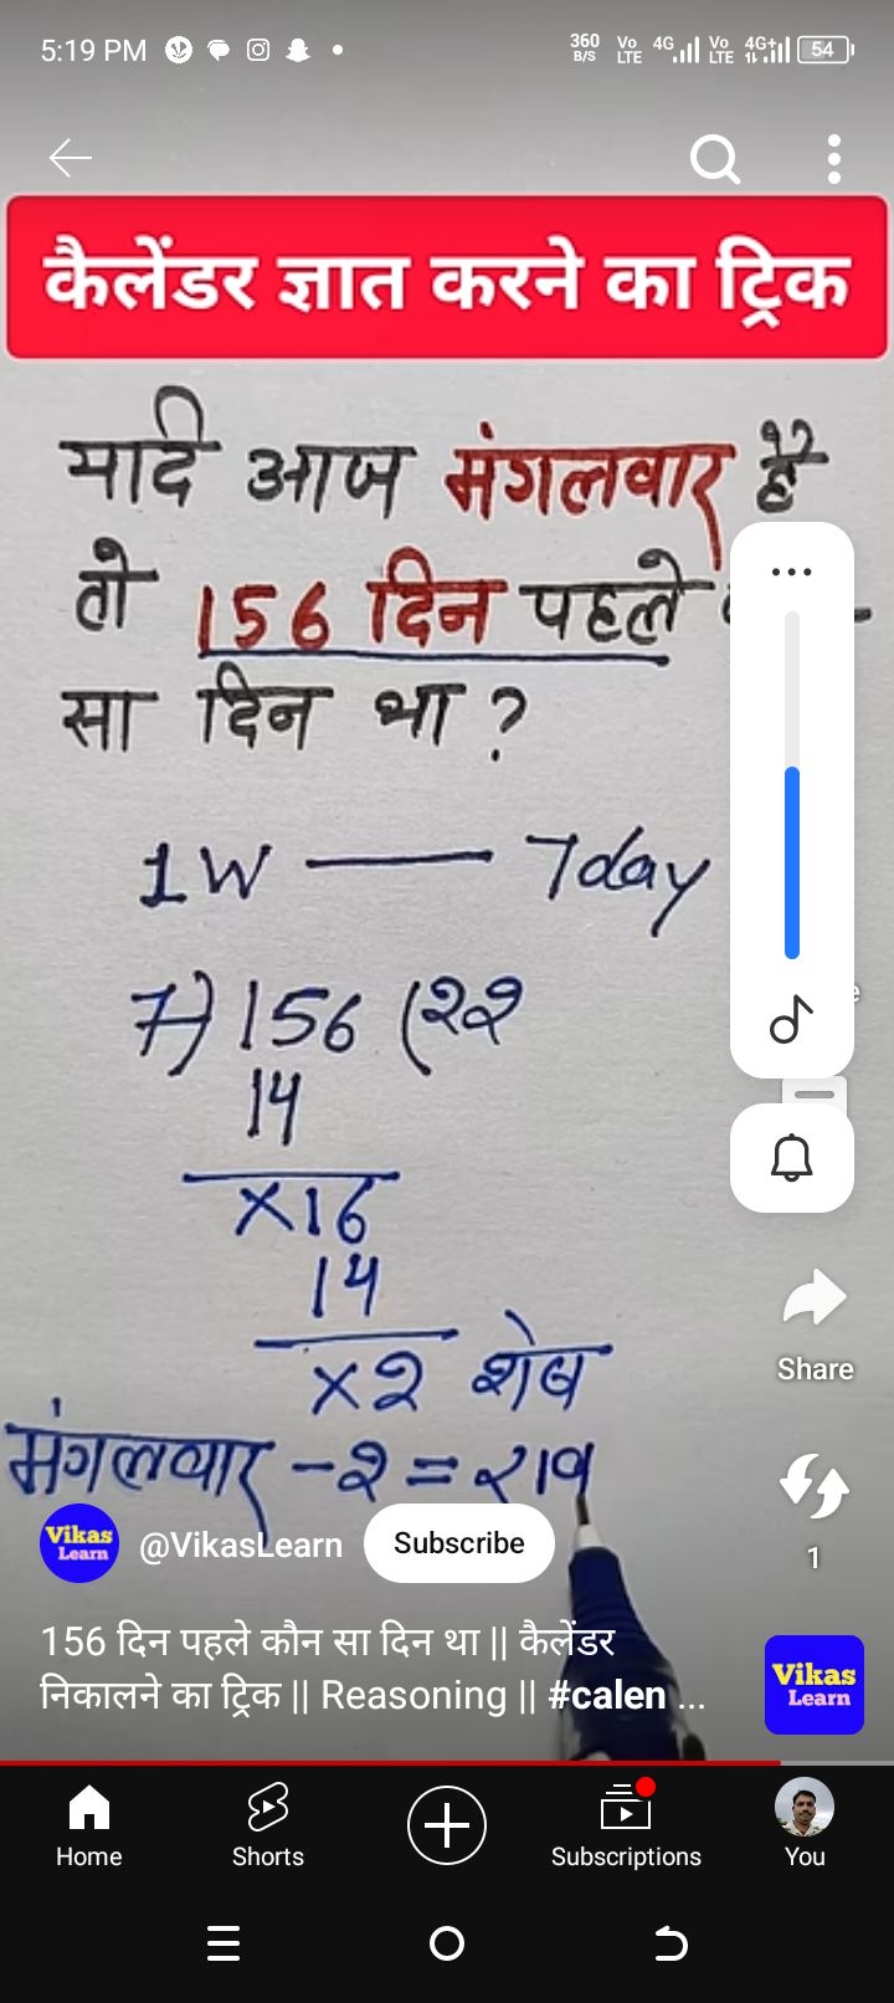 5:19 PM
360 B/S Vo LTE 4G Vo LTE 4G+ 54
कैलेंडर ज्ञात करने का ट्रिक
यदि आज मंगलवार है
तो 156 दिन पहले
सा दिन था ?
1W — 7day
7) 156 (२२
14
×16
14
×२ शेष
मंगलवार -२ = रवि
Share
Vikas Learn @VikasLearn Subscribe
1
156 दिन पहले कौन सा दिन था || कैलेंडर
निकालने का ट्रिक || Reasoning || #calen ...
Vikas Learn
Home Shorts Subscriptions You